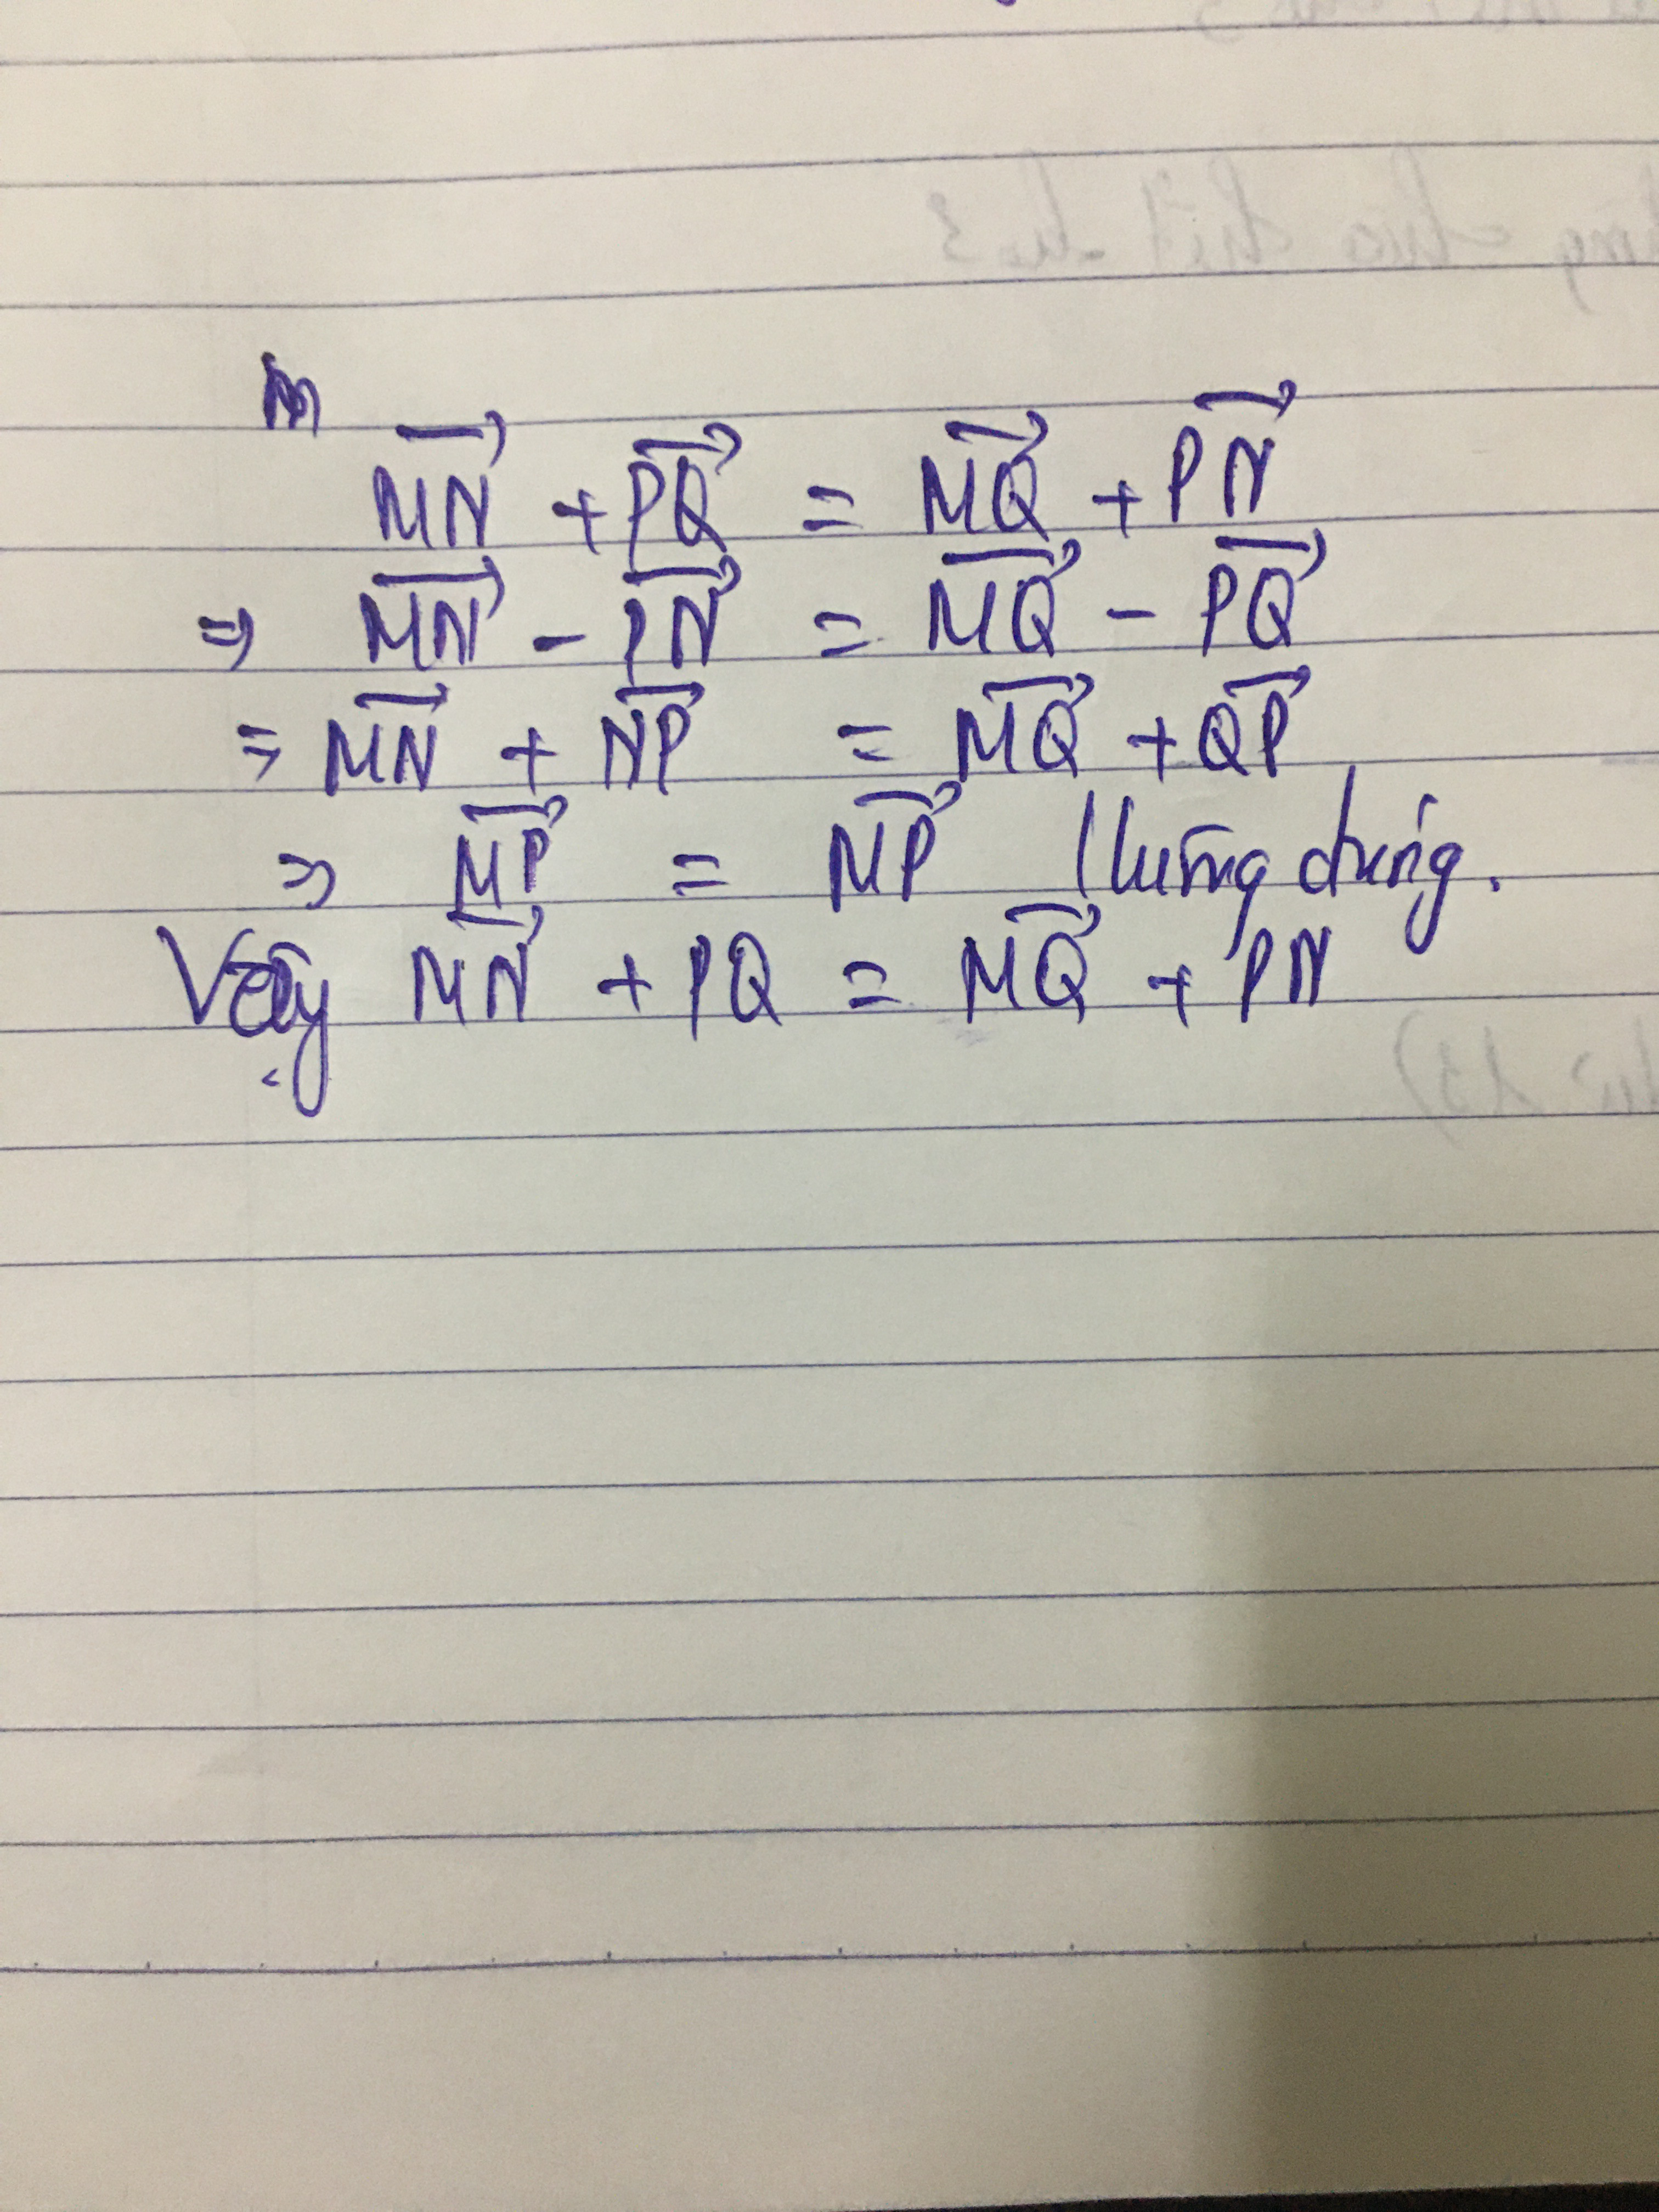 $\overrightarrow{MN} + \overrightarrow{PQ} = \overrightarrow{MQ} + \overrightarrow{PN}$
$\Rightarrow \overrightarrow{MN} - \overrightarrow{PN} = \overrightarrow{MQ} - \overrightarrow{PQ}$
$\Rightarrow \overrightarrow{MN} + \overrightarrow{NP} = \overrightarrow{MQ} + \overrightarrow{QP}$
$\Rightarrow \overrightarrow{MP} = \overrightarrow{MP}$ (luông đúng.
Vậy $\overrightarrow{MN} + PQ = \overrightarrow{MQ} + PN$